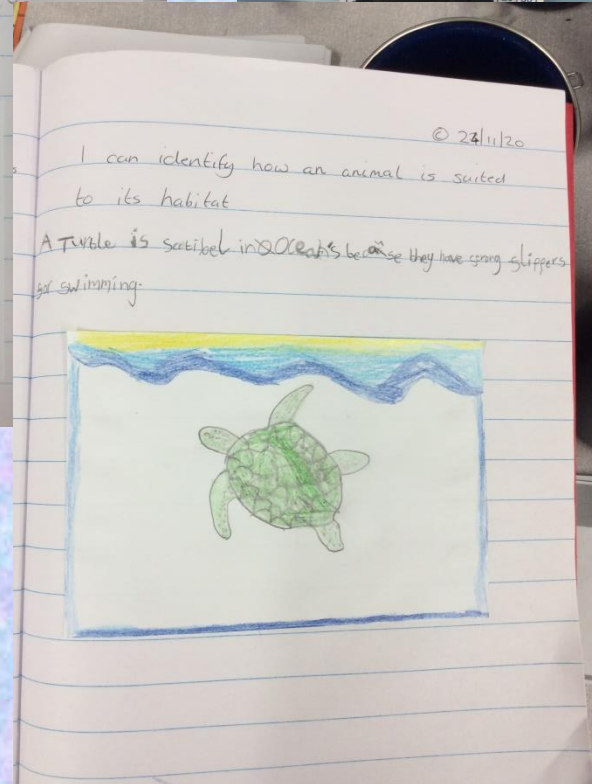 © 23/11/20
I can identify how an animal is suited
to its habitat
A Turtle is sootibel in Ocean's because they have strong flippers
for swimming.